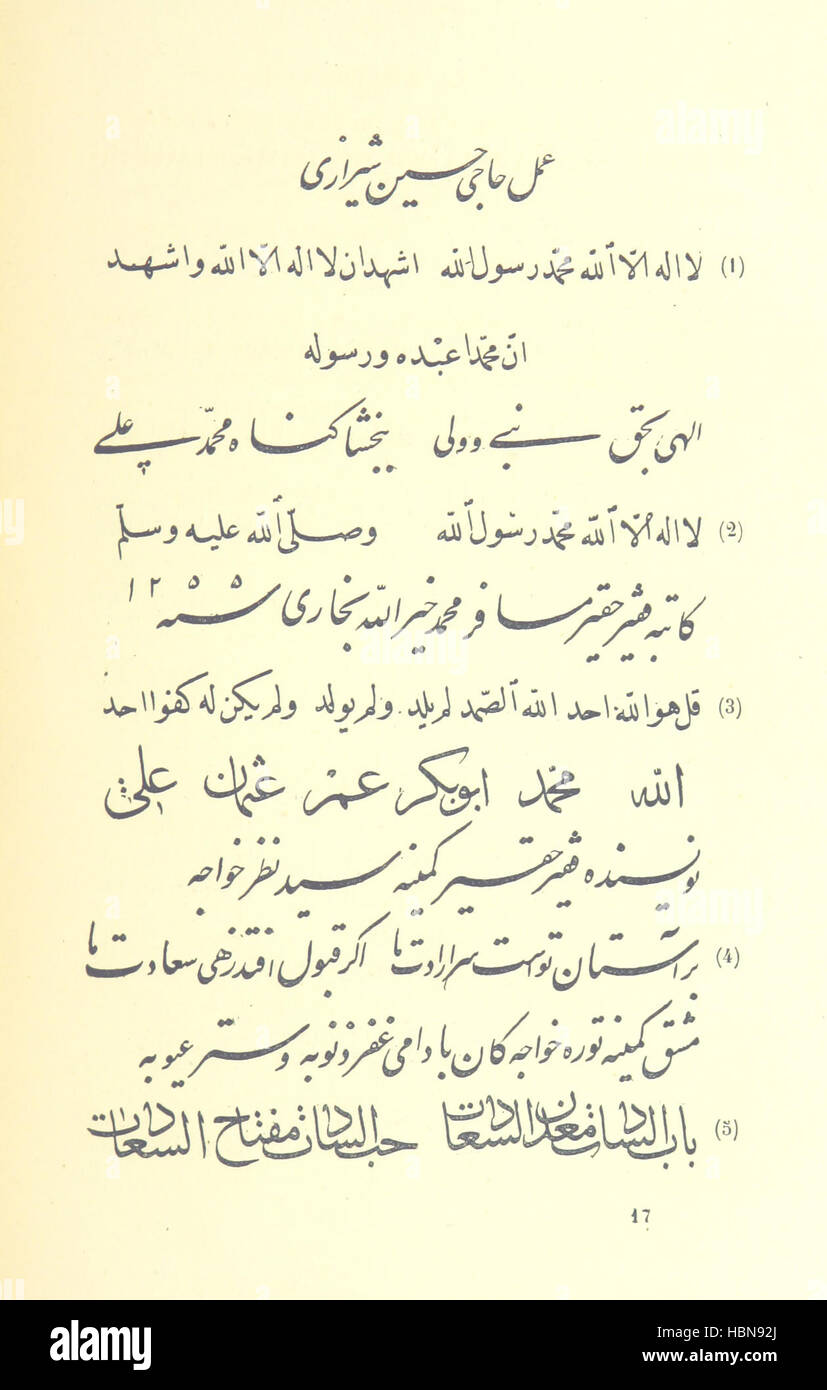 عمل حاجی حسین شیرازی
(1) لا اله الّا اللّه محمّد رسول اللّه اشهد ان لا اله الّا اللّه و اشهد
انّ محمّدا عبده و رسوله
الهی بحق نبی و ولی ببخشا کناه محمّد علی
(2) لا اله الّا اللّه محمّد رسول اللّه و صلّی اللّه علیه و سلّم
کاتبه فقیر حقیر مسافر محمد خیر اللّه بخاری سنه ۱۲۵۵
(3) قل هو اللّه احد اللّه الصّمد لم یلد و لم یولد و لم یکن له کفوا احد
اللّه محمّد ابوبکر عمر عثمان علی
نویسنده فقیر حقیر کمینه سید نظر خواجه
(4) بر آستان تو است سر ارادت ما اکر قبول افتد زهی سعادت ما
مشق کمینه توره خواجه کان بادامی غفر ذنوبه و ستر عیوبه
(5) باب السادات معدن السعادات حب السادات مفتاح السعادات
17
alamy
Image ID: HBN92J
www.alamy.com